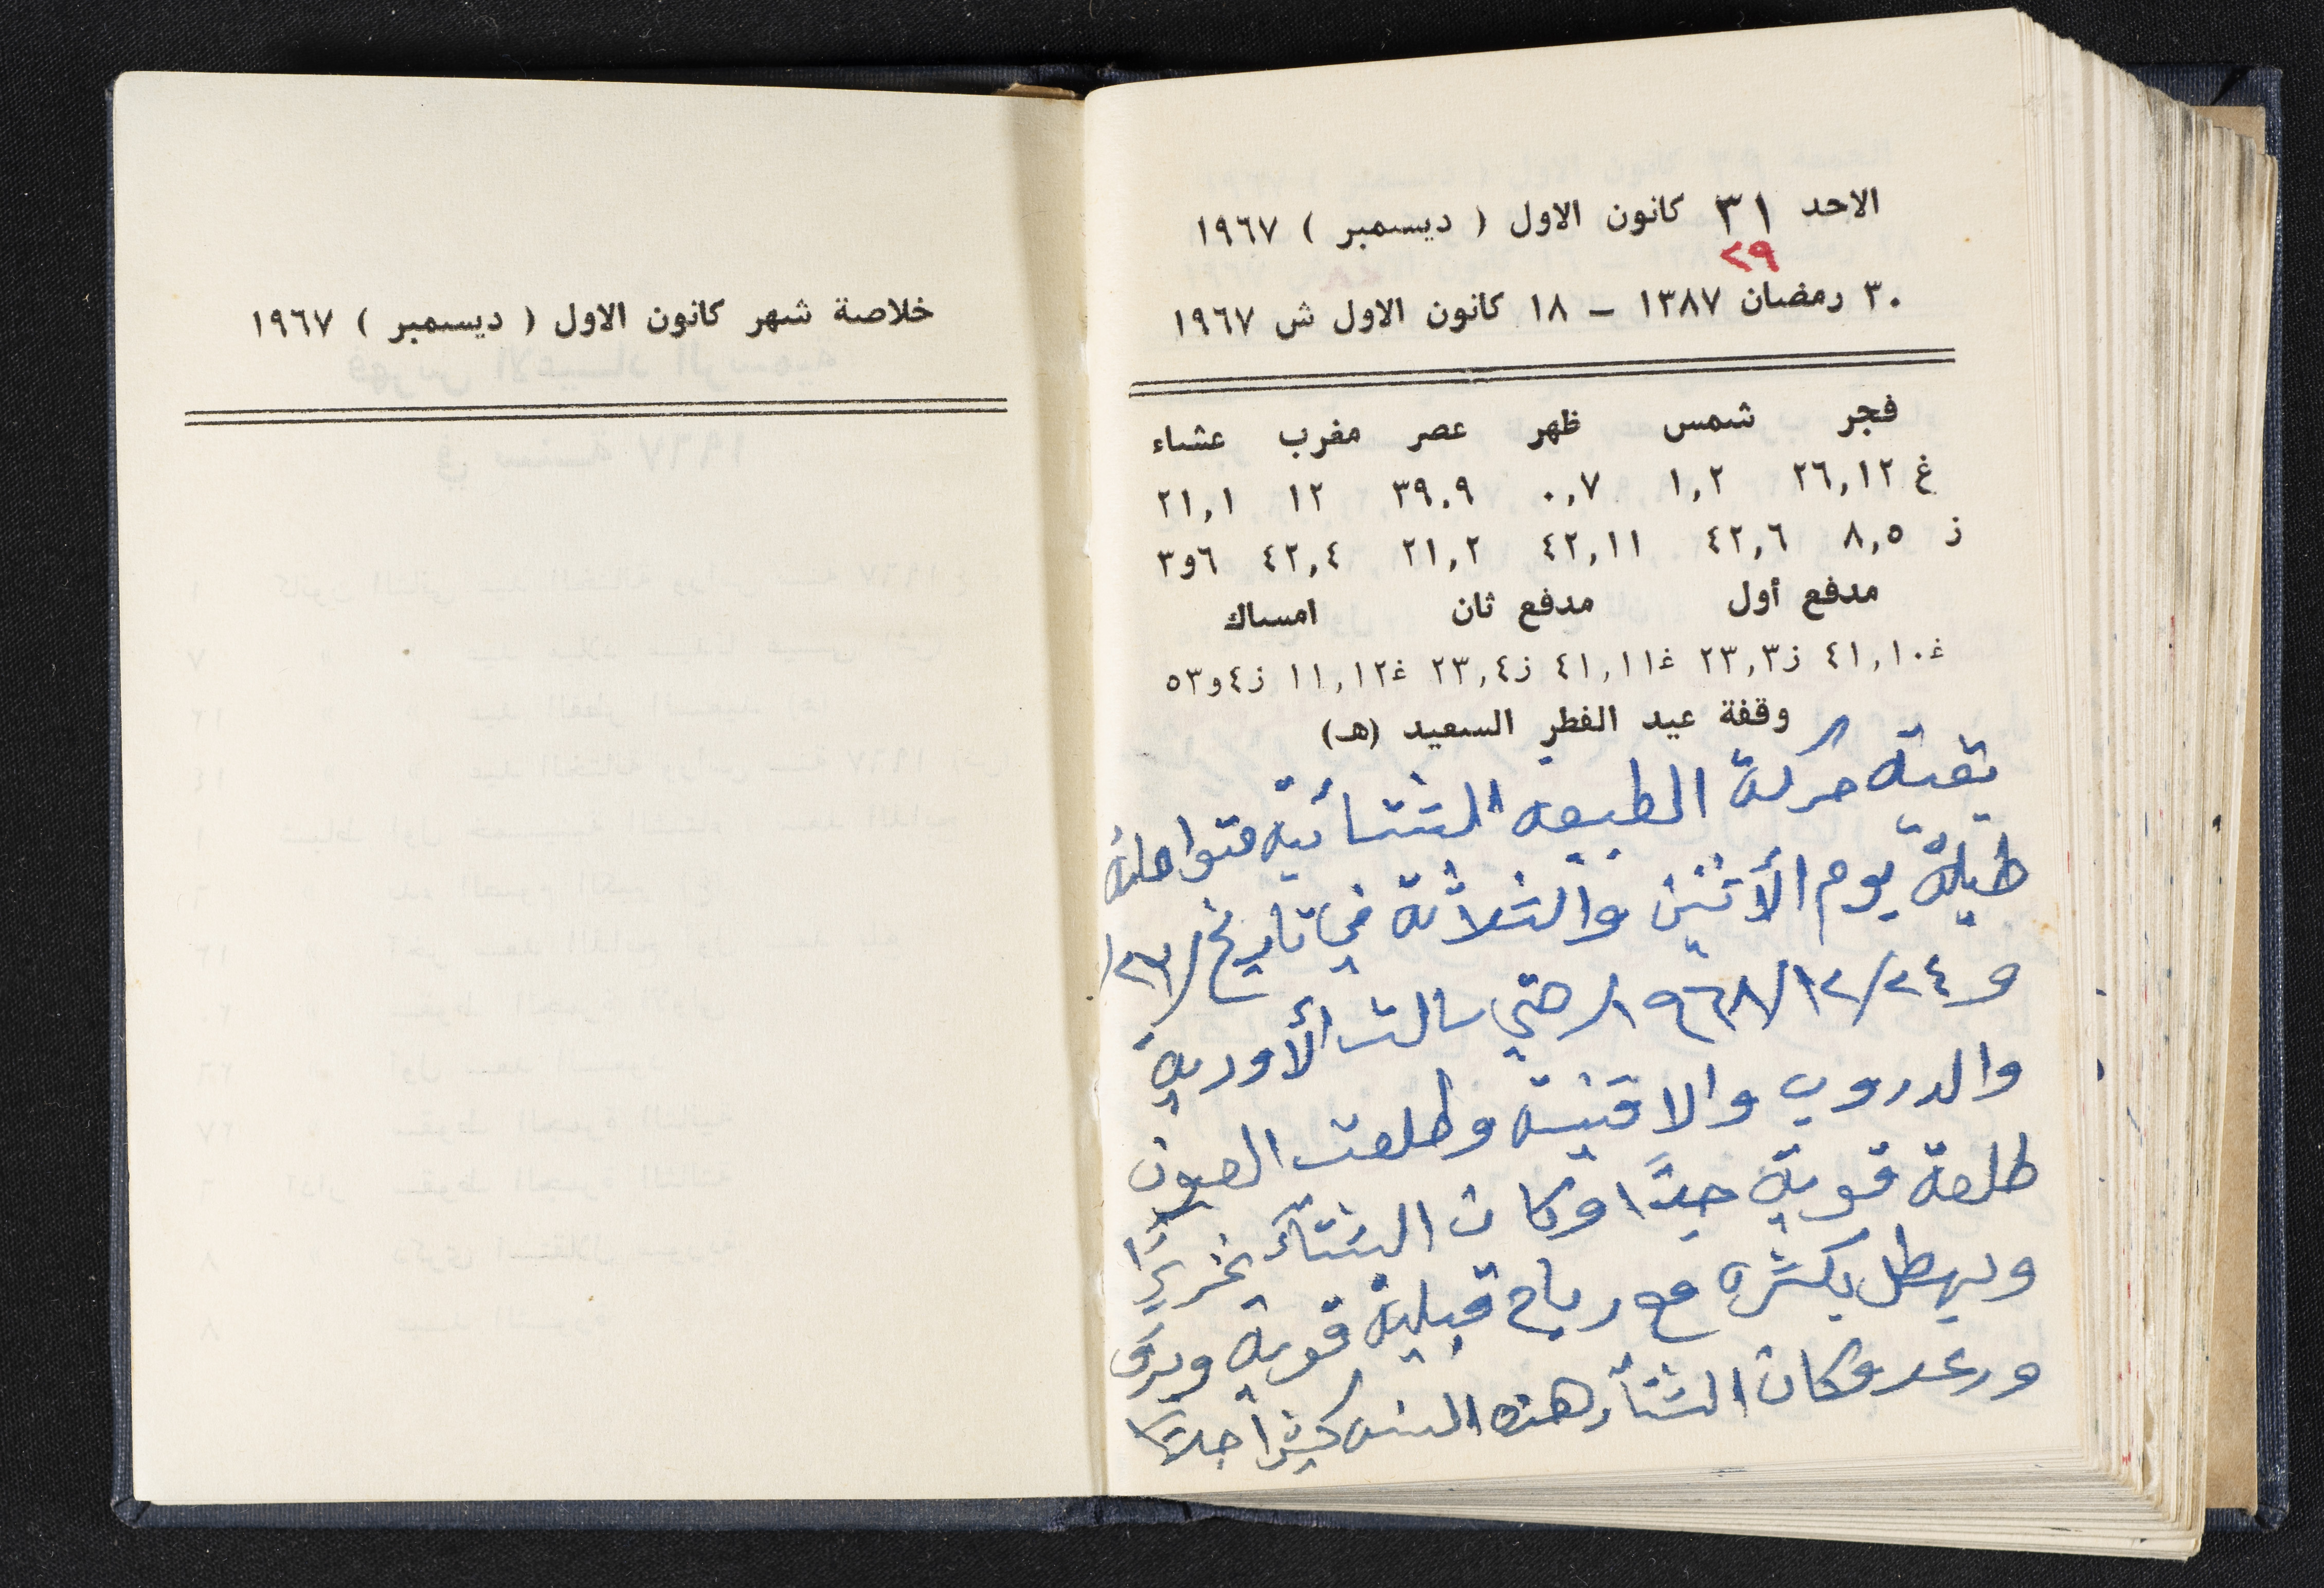 الاحد ٣١ كانون الاول ( ديسمبر ) ١٩٦٧
٢٩
٣٠ رمضان ١٣٨٧ – ١٨ كانون الاول ش ١٩٦٧
فجر شمس ظهر عصر مغرب عشاء
غ ٢٦,١٢ ١,٢ ٠,٧ ٣٩,٩ ١٢ ٢١,١
ز ٨,٥ ٤٢,٦ ٤٢,١١ ٢١,٢ ٤٢,٤ ٦و٣
مدفع أول مدفع ثان امساك
غ٤١,١٠ ز٢٣,٣ غ٤١,١١ ز٢٣,٤ غ١١,١٢ ز٤و٥٣
وقفة عيد الفطر السعيد (هـ)
بقية حركة الطبيعه الشتائية متواصلة
طيلة يوم الأثنين والثلاثة في تاريخ /٢٣/
و ٢٤/١٢/١٩٦٨ حتى سالت الأودية
والدروب والاقنية وطلعت العيون
طلعة قوية جدًا وكان الشتاء غزيرًا
ويهطل بكثره مع رياح قبلية قوية وبرق
ورعد وكان الشتاء هذه السنه كثيراً جدًا
خلاصة شهر كانون الاول ( ديسمبر ) ١٩٦٧